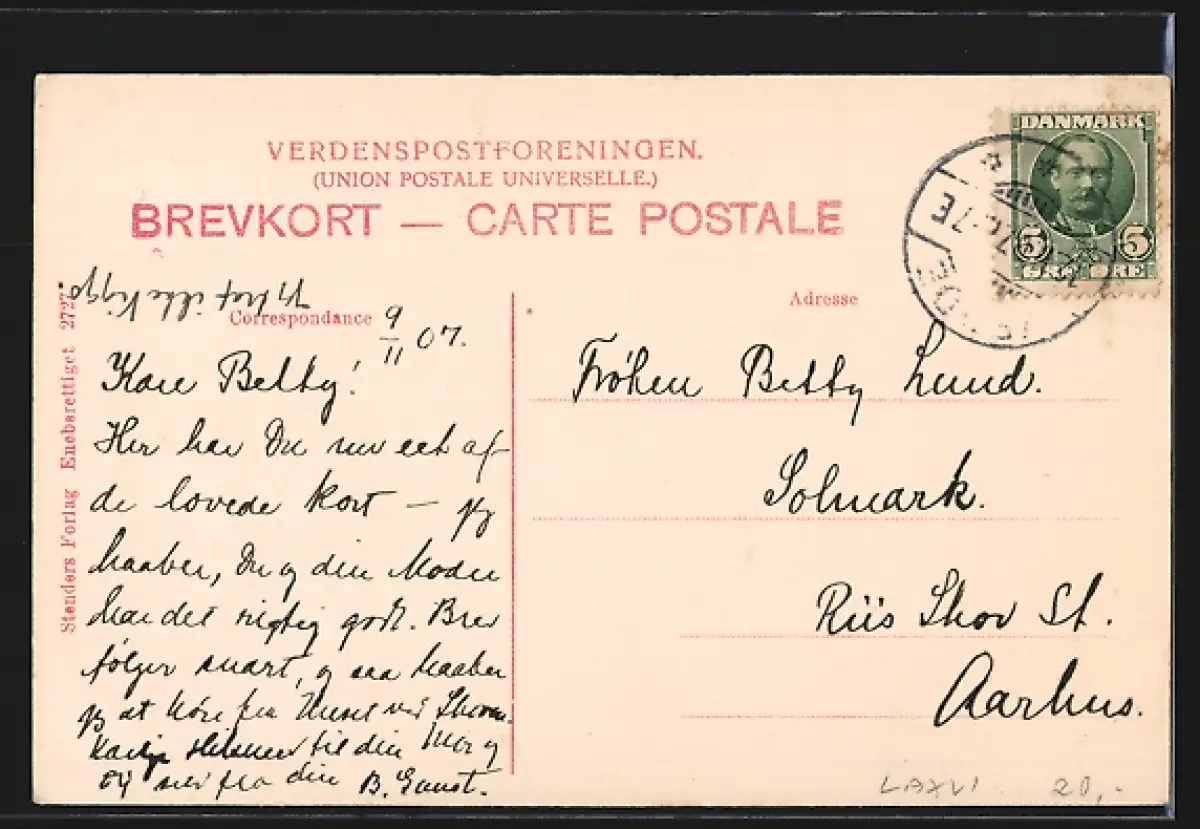 VERDENSPOSTFORENINGEN.
(UNION POSTALE UNIVERSELLE.)
BREVKORT — CARTE POSTALE
DANMARK
5 5
ØRE ØRE
Correspondance
Adresse
Stenders Forlag Eneberettiget 2727
9/11 07.
Kære Betty!
Her har Du nu eet af
de lovede Kort — jeg
haaber, Du og din Moder
har det rigtig godt. Brev
følger snart, og saa haaber
jeg at höre fra Huset ved Skoven.
Hilsener til din Mor og
fra din B.
Fröken Betty Lund.
Solmark.
Riis Skov St.
Aarhus.
20,-